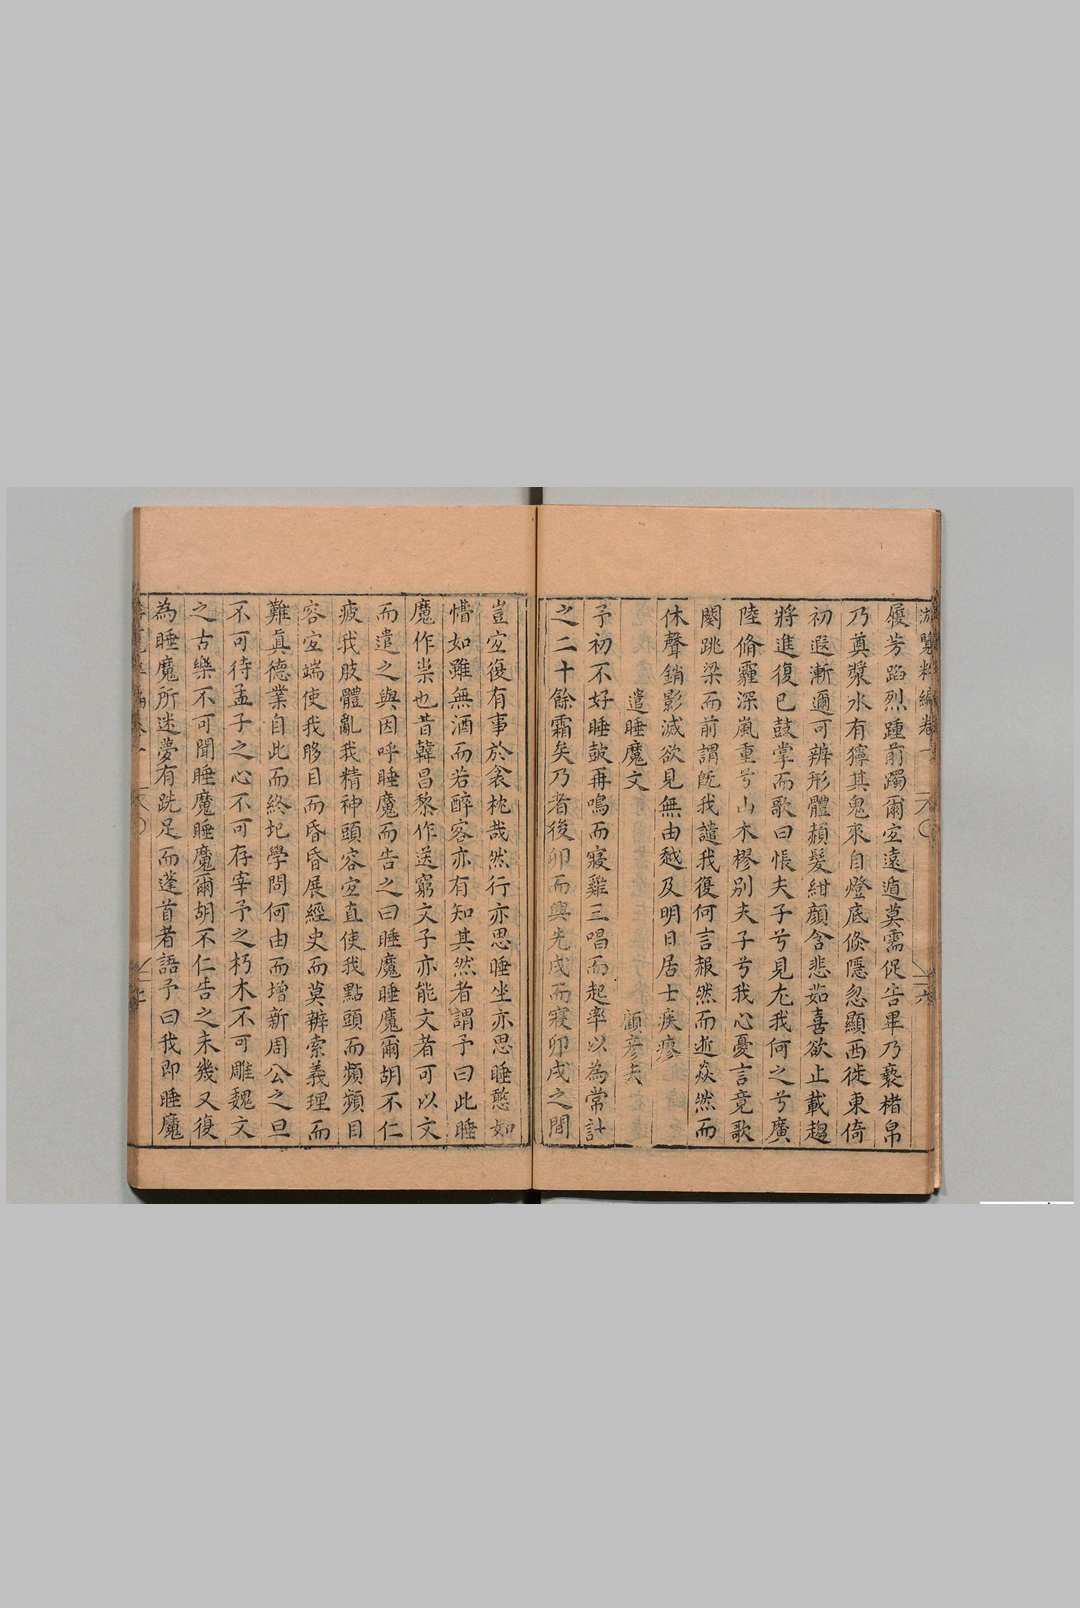 遊覽粹編卷一 六
履芳蹈烈踵前躅爾宜遠遁莫需促告畢乃爇楮帛
乃奠漿水有獰其鬼來自燈底倏隱忽顯西徙東倚
初遐漸邇可辨形體赬髮紺顏含悲茹喜欲止載趨
將進復已鼓掌而歌曰悵夫子兮見尤我何之兮廣
陸脩霾深嵐重兮山木樛別夫子兮我心憂言竟歌
闋跳梁而前謂旣我譴我復何言赧然而逝焱然而
休聲銷影滅欲見無由越及明日居士疾瘳
遣睡魔文 顧彥夫
予初不好睡鼓再鳴而寢雞三唱而起率以為常計
之二十餘霜矣乃者後卯而興先戌而寢卯戌之間
豈宜復有事於衾枕哉然行亦思睡坐亦思睡憨如
懵如雖無酒而若醉客亦有知其然者謂予曰此睡
魔作祟也昔韓昌黎作送窮文子亦能文者可以文
而遣之與因呼睡魔而告之曰睡魔睡魔爾胡不仁
疲我肢體亂我精神頭容宜直使我點頭而頻頻目
容宜端使我眵目而昏昏展經史而莫辨索義理而
難真德業自此而終圮學問何由而增新周公之旦
不可待孟子之心不可存宰予之朽木不可雕魏文
之古樂不可聞睡魔睡魔爾胡不仁告之未幾又復
為睡魔所迷夢有跣足而蓬首者語予曰我即睡魔
七